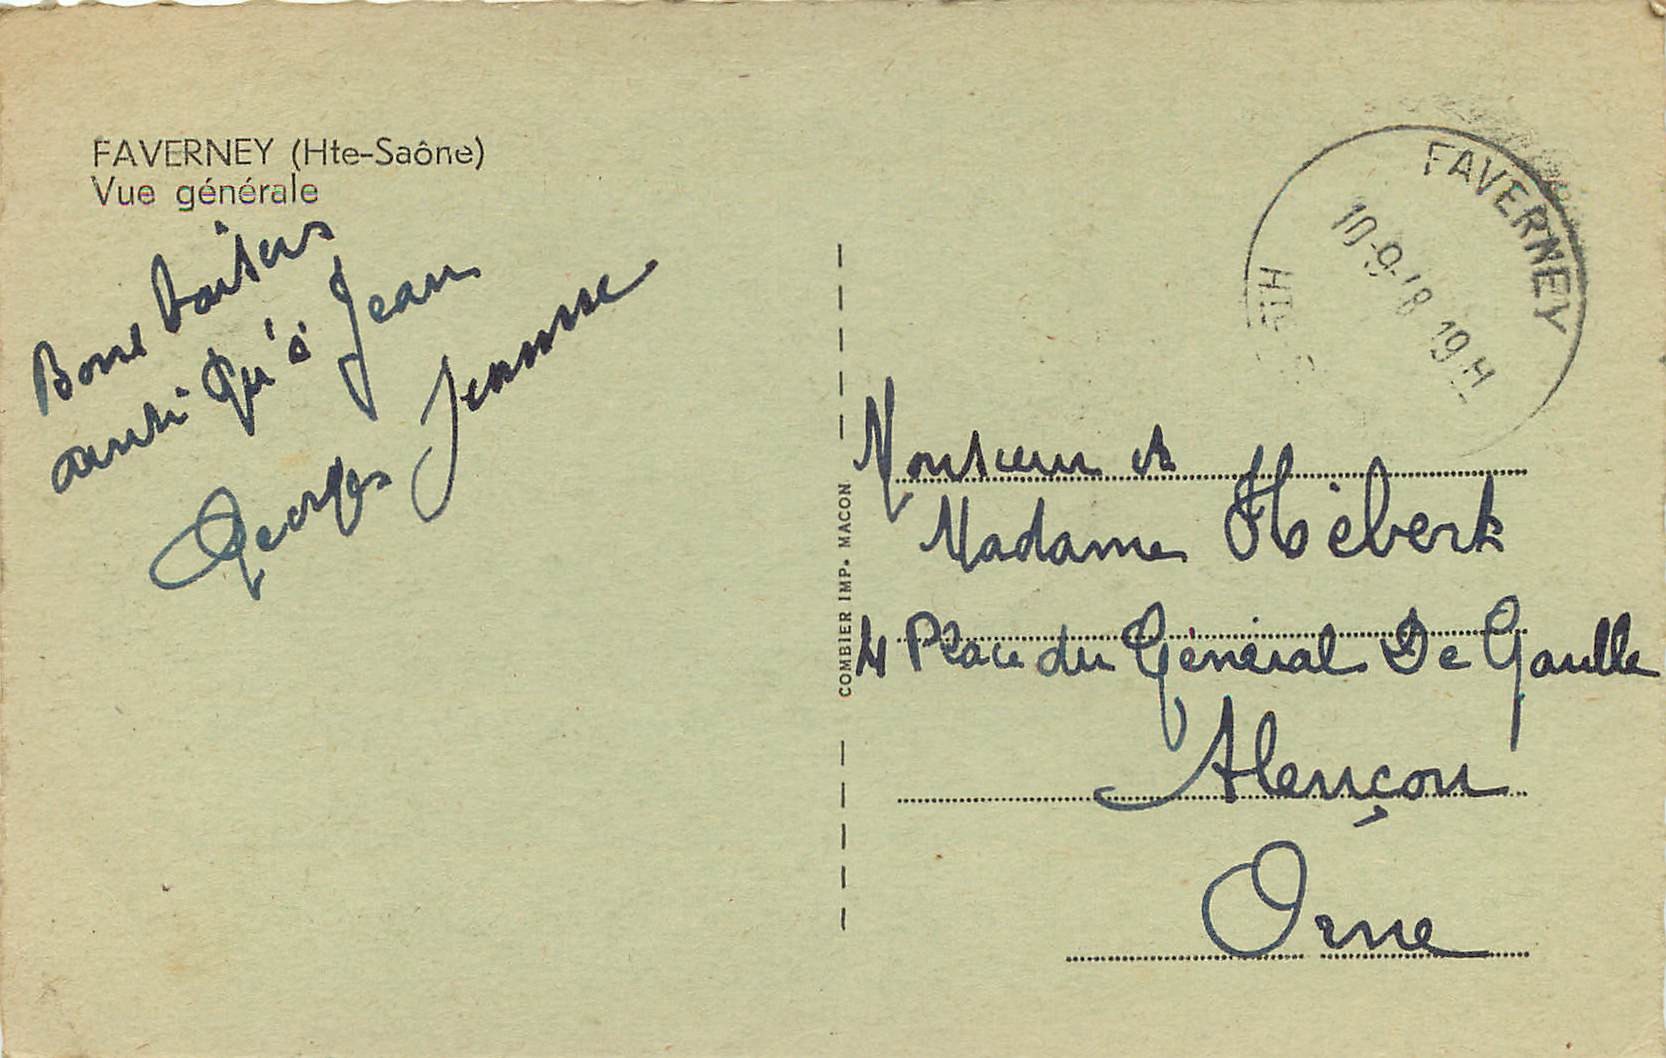 FAVERNEY (Hte-Saône)
Vue générale
Bons baisers
ainsi qu'à Jean
Georges Jeanne
COMBIER IMP. MACON
FAVERNEY
10-9-48 19 H
Monsieur et
Madame Hébert
4 Place du Général De Gaulle
Alençon
Orne